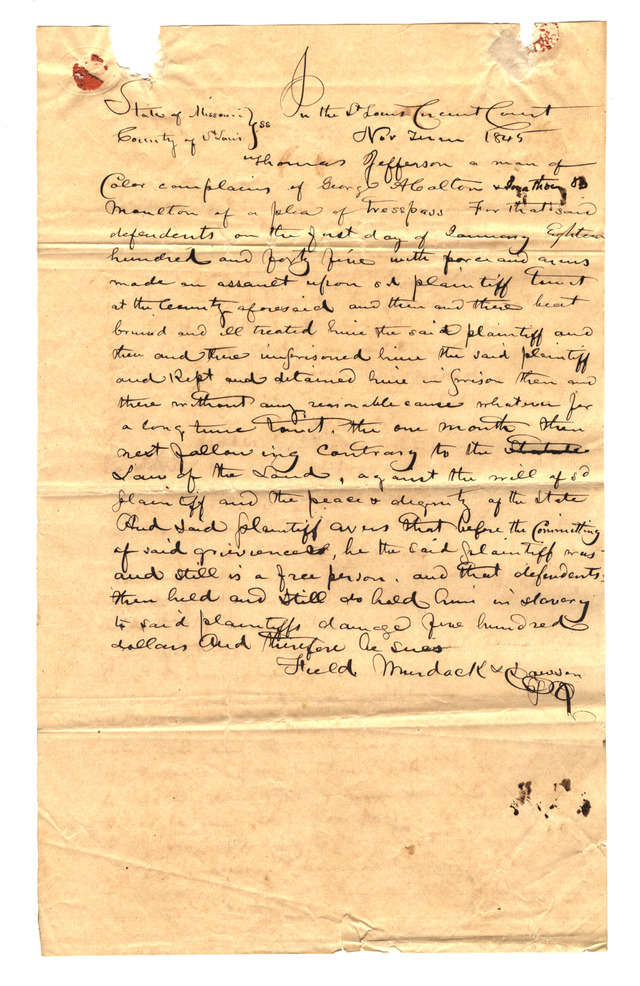 State of Missouri } ss In the St Louis Circuit Court
County of St Louis Nov Term 1845
Thomas Jefferson a man of
Color complains of George A Colton & Jonathan
Moulton of a plea of tresspass For that said
defendents on the first day of January Eighteen
hundred and forty five with force and arms
made an assault upon sd plaintiff towit
at the County aforesaid and then and there beat
bruised and ill treated him the said plaintiff and
then and there imprisoned him the said plaintiff
and Kept and detained him in prison then and
there without any reasonable cause whatever for
a long time towit, the one month then
next following contrary to the Statute
Law of the Land, against the will of sd
plaintiff and the peace & dignity of the State
And said plaintiff avers that before the Committing
of said grieviences, he the said plaintiff was
and still is a free person. and that defendents
then held and still do hold him in slavery
to said plaintiffs damage five hundred
dollars And therefore he sues
Field Murdock &